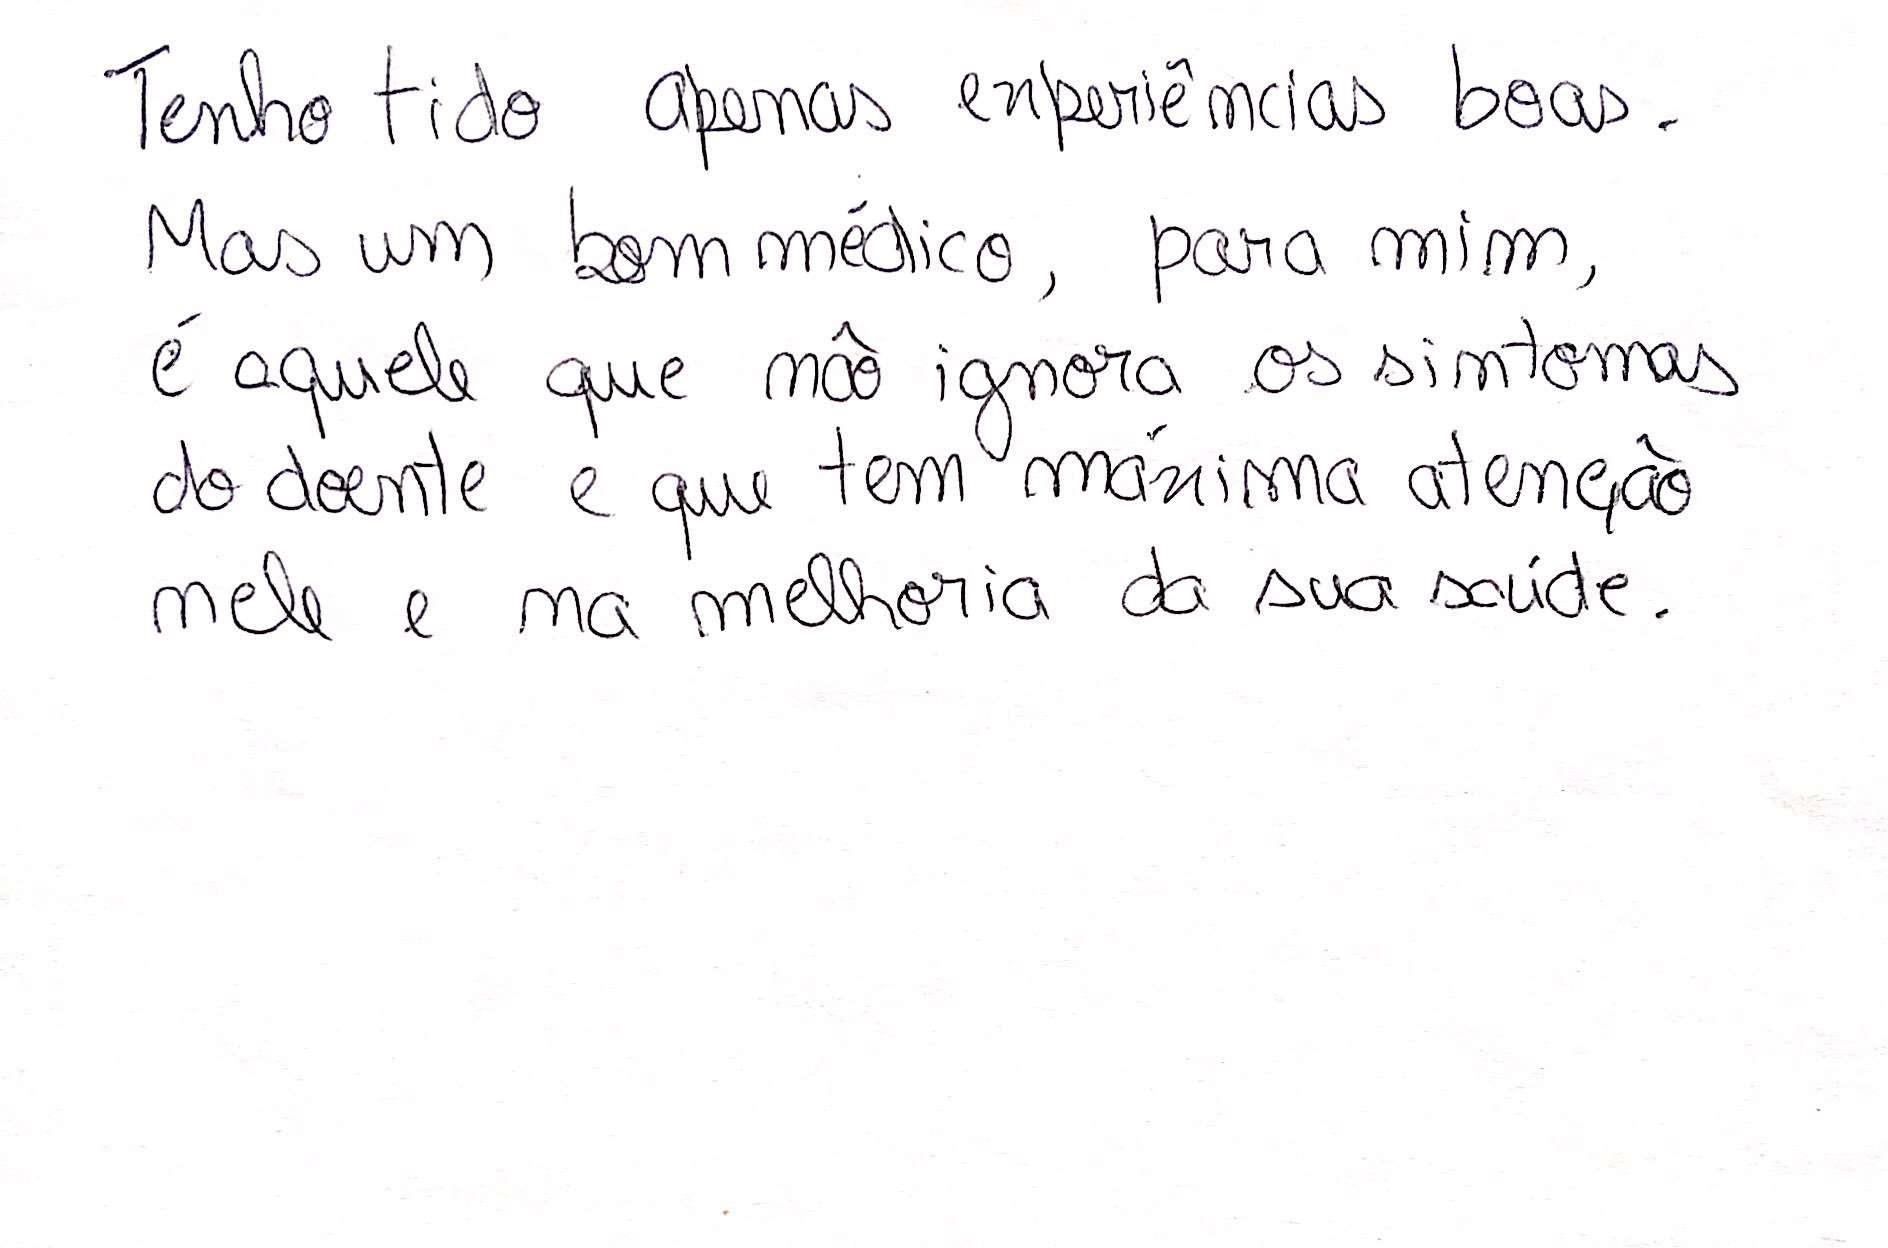 Tenho tido apenas experiências boas.
Mas um bom médico, para mim,
é aquele que não ignora os sintomas
do doente e que tem máxima atenção
nele e na melhoria da sua saúde.